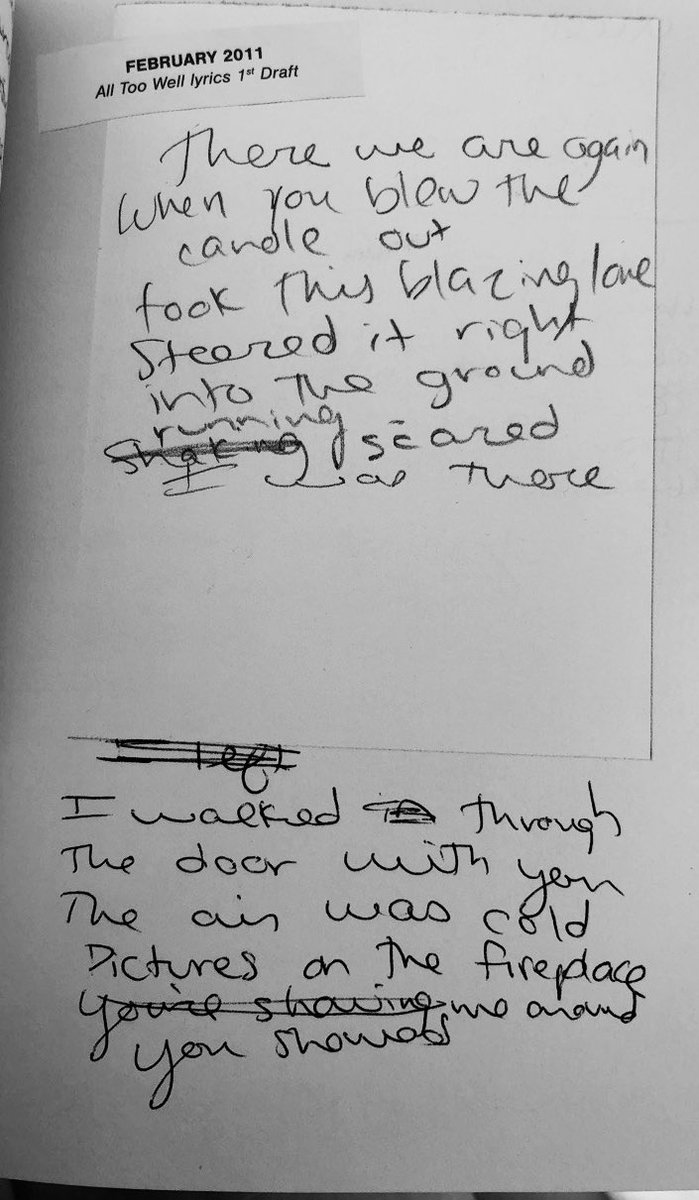 FEBRUARY 2011
All Too Well lyrics 1st Draft
There we are again
When you blew the
candle out
took this blazing love
Steered it right
into the ground
running
Shaking scared
I was there
Left
I walked in through
The door with you
The air was cold
Pictures on the fireplace
You're showing me around
you showed